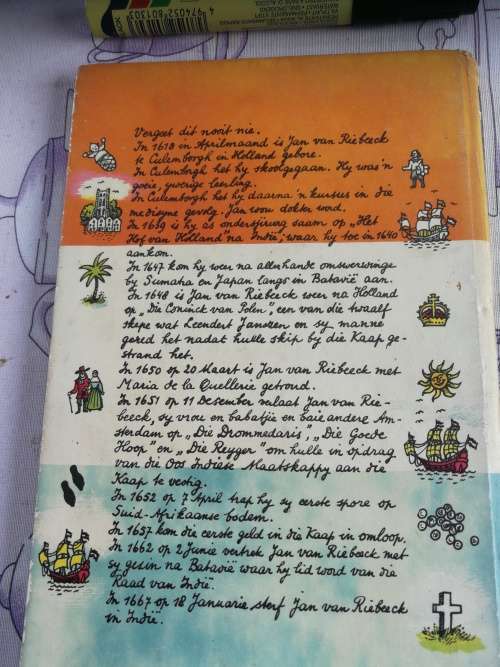 4 974052 801303
Vergeet dit nooit nie.
In 1618 in Aprilmaand is Jan van Riebeeck
te Culemborgh in Holland gebore.
In Culemborgh het hy skoolgegaan. Hy was 'n
goeie, ywerige leerling.
In Culemborgh het hy daarna 'n kursus in die
medisyne gevolg. Jan wou dokter word.
In 1639 is hy as onderchirurg saam op „Het
Hof van Holland" na Indië, waar hy toe in 1640
aankom.
In 1647 kom hy weer na allerhande omswerwinge
by Sumatra en Japan langs in Batavië aan.
In 1648 is Jan van Riebeeck weer na Holland
op „Die Coninck van Polen", een van die twaalf
skepe wat Leendert Janszen en sy manne
gered het nadat hulle skip by die Kaap ge-
strand het.
In 1650 op 20 Maart is Jan van Riebeeck met
Maria de la Quellerie getroud.
In 1651 op 11 Desember verlaat Jan van Rie-
beeck, sy vrou en babatjie en baie andere Am-
sterdam op „Die Drommedaris", „Die Goede
Hoop" en „Die Reyger" om hulle in opdrag
van die Oos Indiese Maatskappy aan die
Kaap te vestig.
In 1652 op 7 April trap hy sy eerste spore op
Suid-Afrikaanse bodem.
In 1657 kom die eerste geld in die Kaap in omloop.
In 1662 op 2 Junie vertrek Jan van Riebeeck met
sy gesin na Batavië waar hy lid word van die
Raad van Indië.
In 1667 op 18 Januarie sterf Jan van Riebeeck
in Indië.